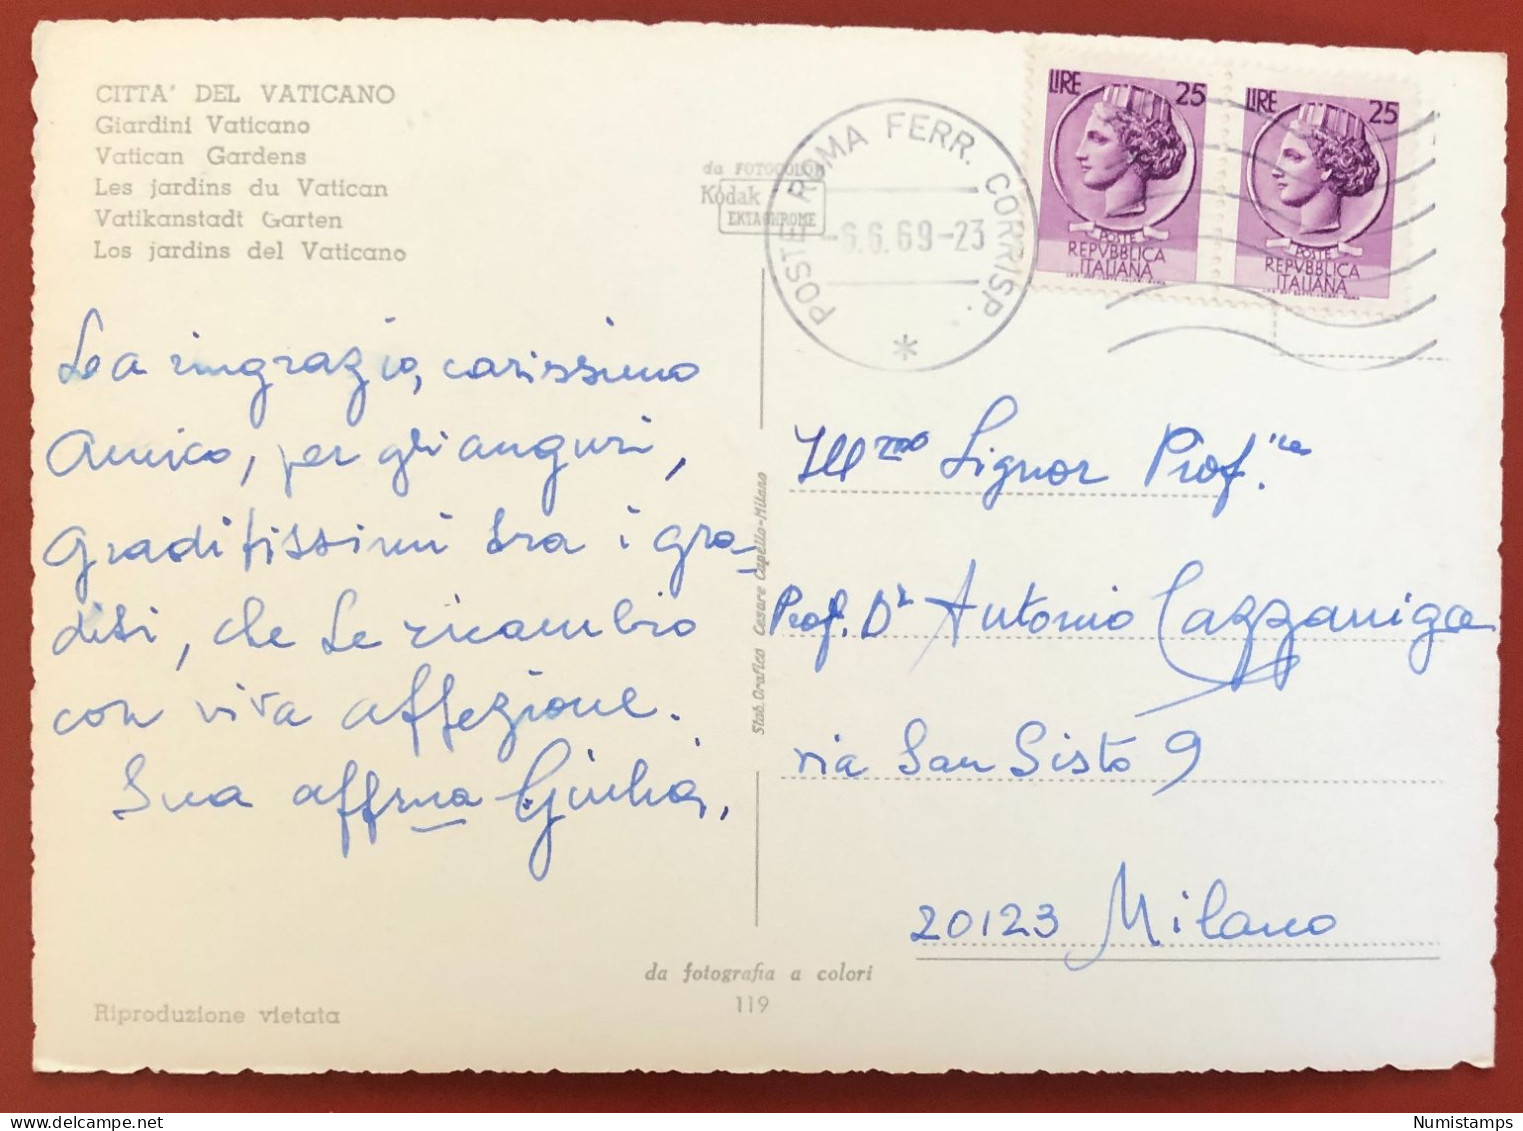 CITTA' DEL VATICANO
Giardini Vaticano
Vatican Gardens
Les jardins du Vatican
Vatikanstadt Garten
Los jardins del Vaticano
da FOTOCOLOR
Kodak
EKTACHROME
POSTE ROMA FERR. CORRISP.
-6.6.69-23
LIRE 25
POSTE
REPVBBLICA
ITALIANA
LIRE 25
POSTE
REPVBBLICA
ITALIANA
La ringrazio, carissimo
Amico, per gli auguri,
graditissimi tra i gra-
diti, che Le ricambio
con viva affezione.
Sua affma Giulia,
Stab. Grafico Cesare Capello-Milano
Ill mo Signor Prof.
Prof. Dr Antonio Cazzaniga
via San Sisto 9
20123 Milano
da fotografia a colori
119
Riproduzione vietata
Numistamps